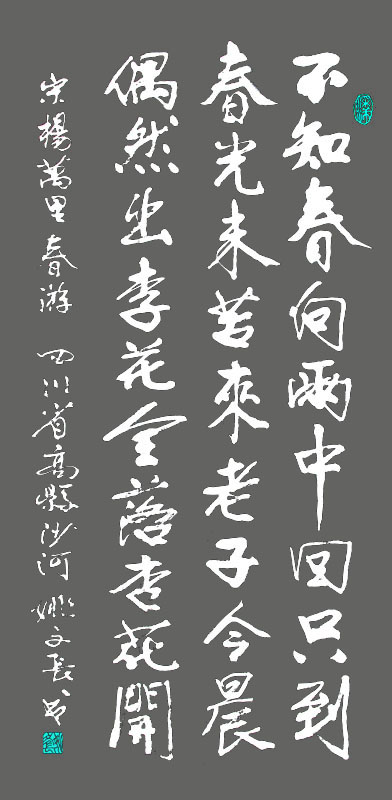 不知春向雨中回只到
春光未苦來老子今晨
偶然出李花全落杏花開
宋楊萬里春游 四川省高縣沙河 文長书